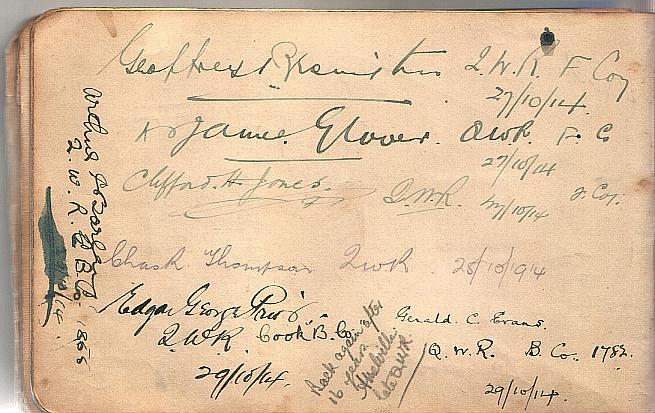 Geoffrey Q.W.R. F Coy
27/10/14.
James Glover. QWR. F. C
27/10/14
Clifford. H. Jones. Q.W.R. F. Coy.
27/10/14
Chas. R. Thompson QWR 28/10/1914
Edgar George
Q.W.R. Cook B. Co.
29/10/14.
Gerald C. Evans.
Q.W.R. B. Co. 1782.
29/10/14.
Back again after
16 years
late QWR
Arthur
Q. W. R. B Co. 1868
/10/14.